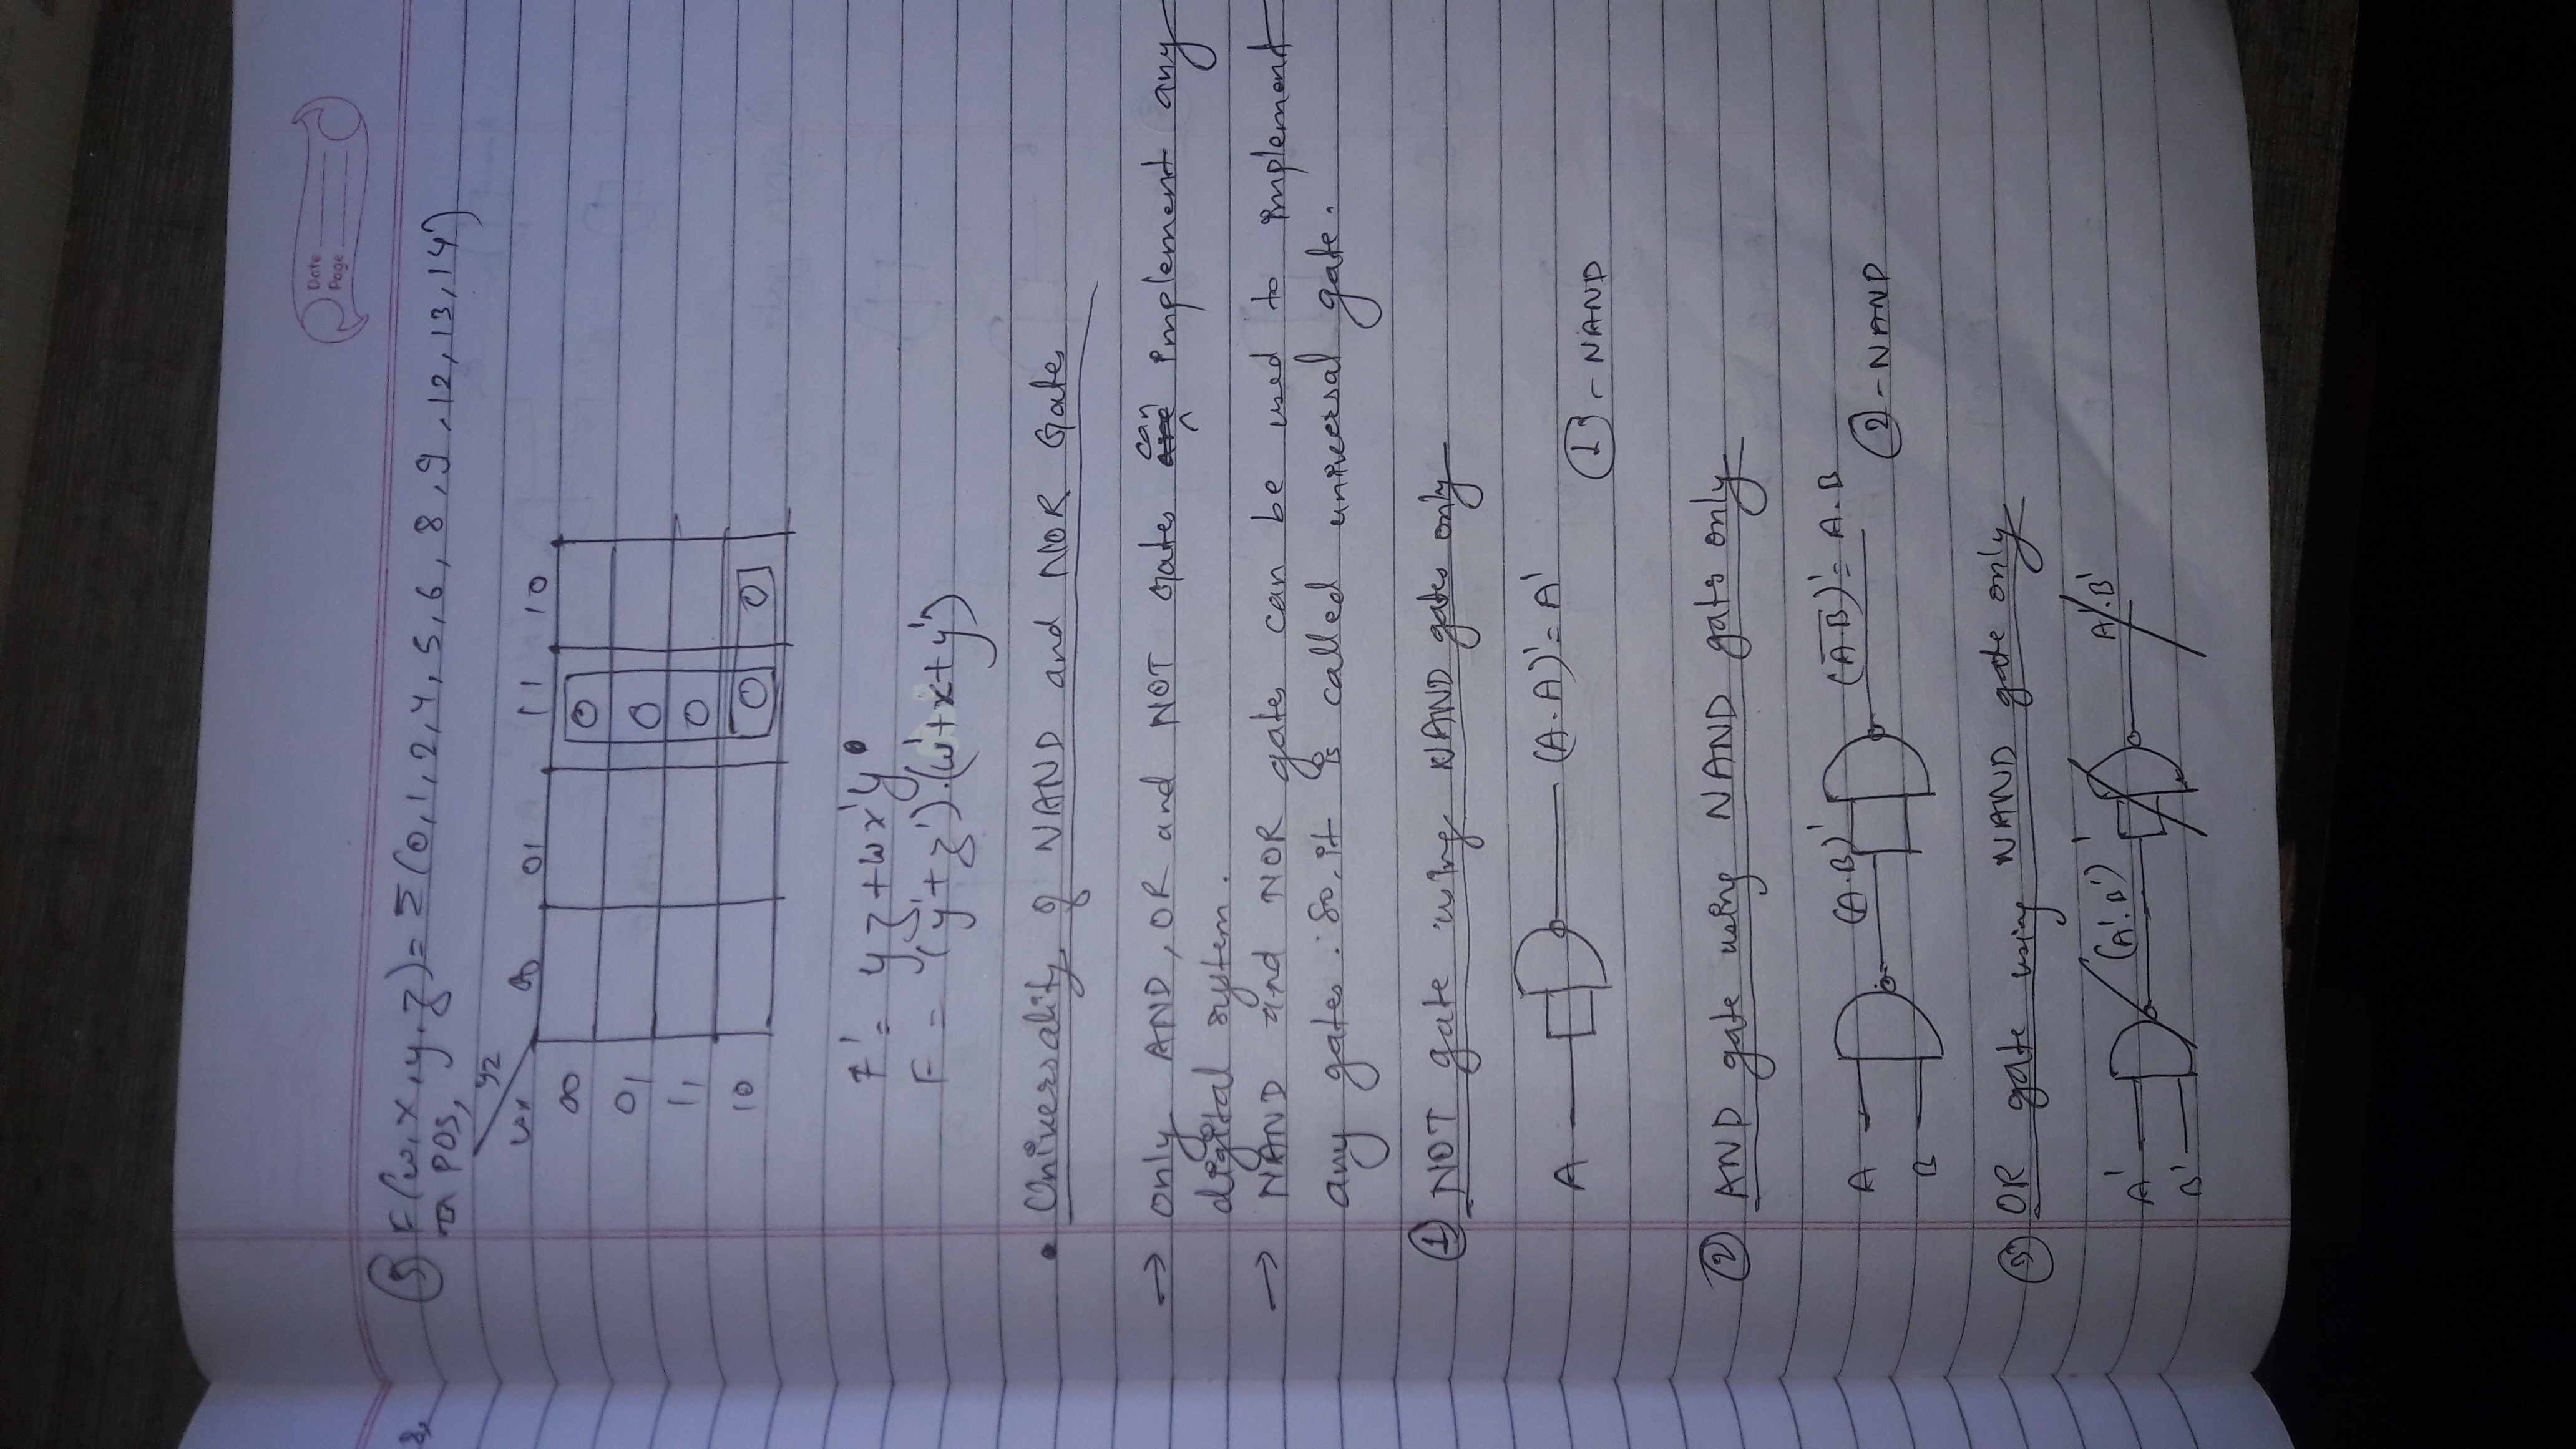 Date
Page
8,
⑤ F(w,x,y,z) = Σ(0,1,2,4,5,6,8,9,12,13,14)
In POS,
yz
wx 00 01 11 10
00 0
01 0
11 0
10 0 0
F' = yz + wx'y
F = (y'+z').(w'+x+y')
• Universality of NAND and NOR Gates
→ only AND, OR and NOT Gates can implement any
digital system.
→ NAND and NOR gates can be used to implement
any gates. So, it is called universal gate.
① NOT gate using NAND gates only
A (A.A)' = A'
① - NAND
② AND gate using NAND gats only
A (A.B)' (A.B)' = A.B
B ② - NAND
③ OR gate using NAND gate only
A' (A'.B')' A'.B'
B'